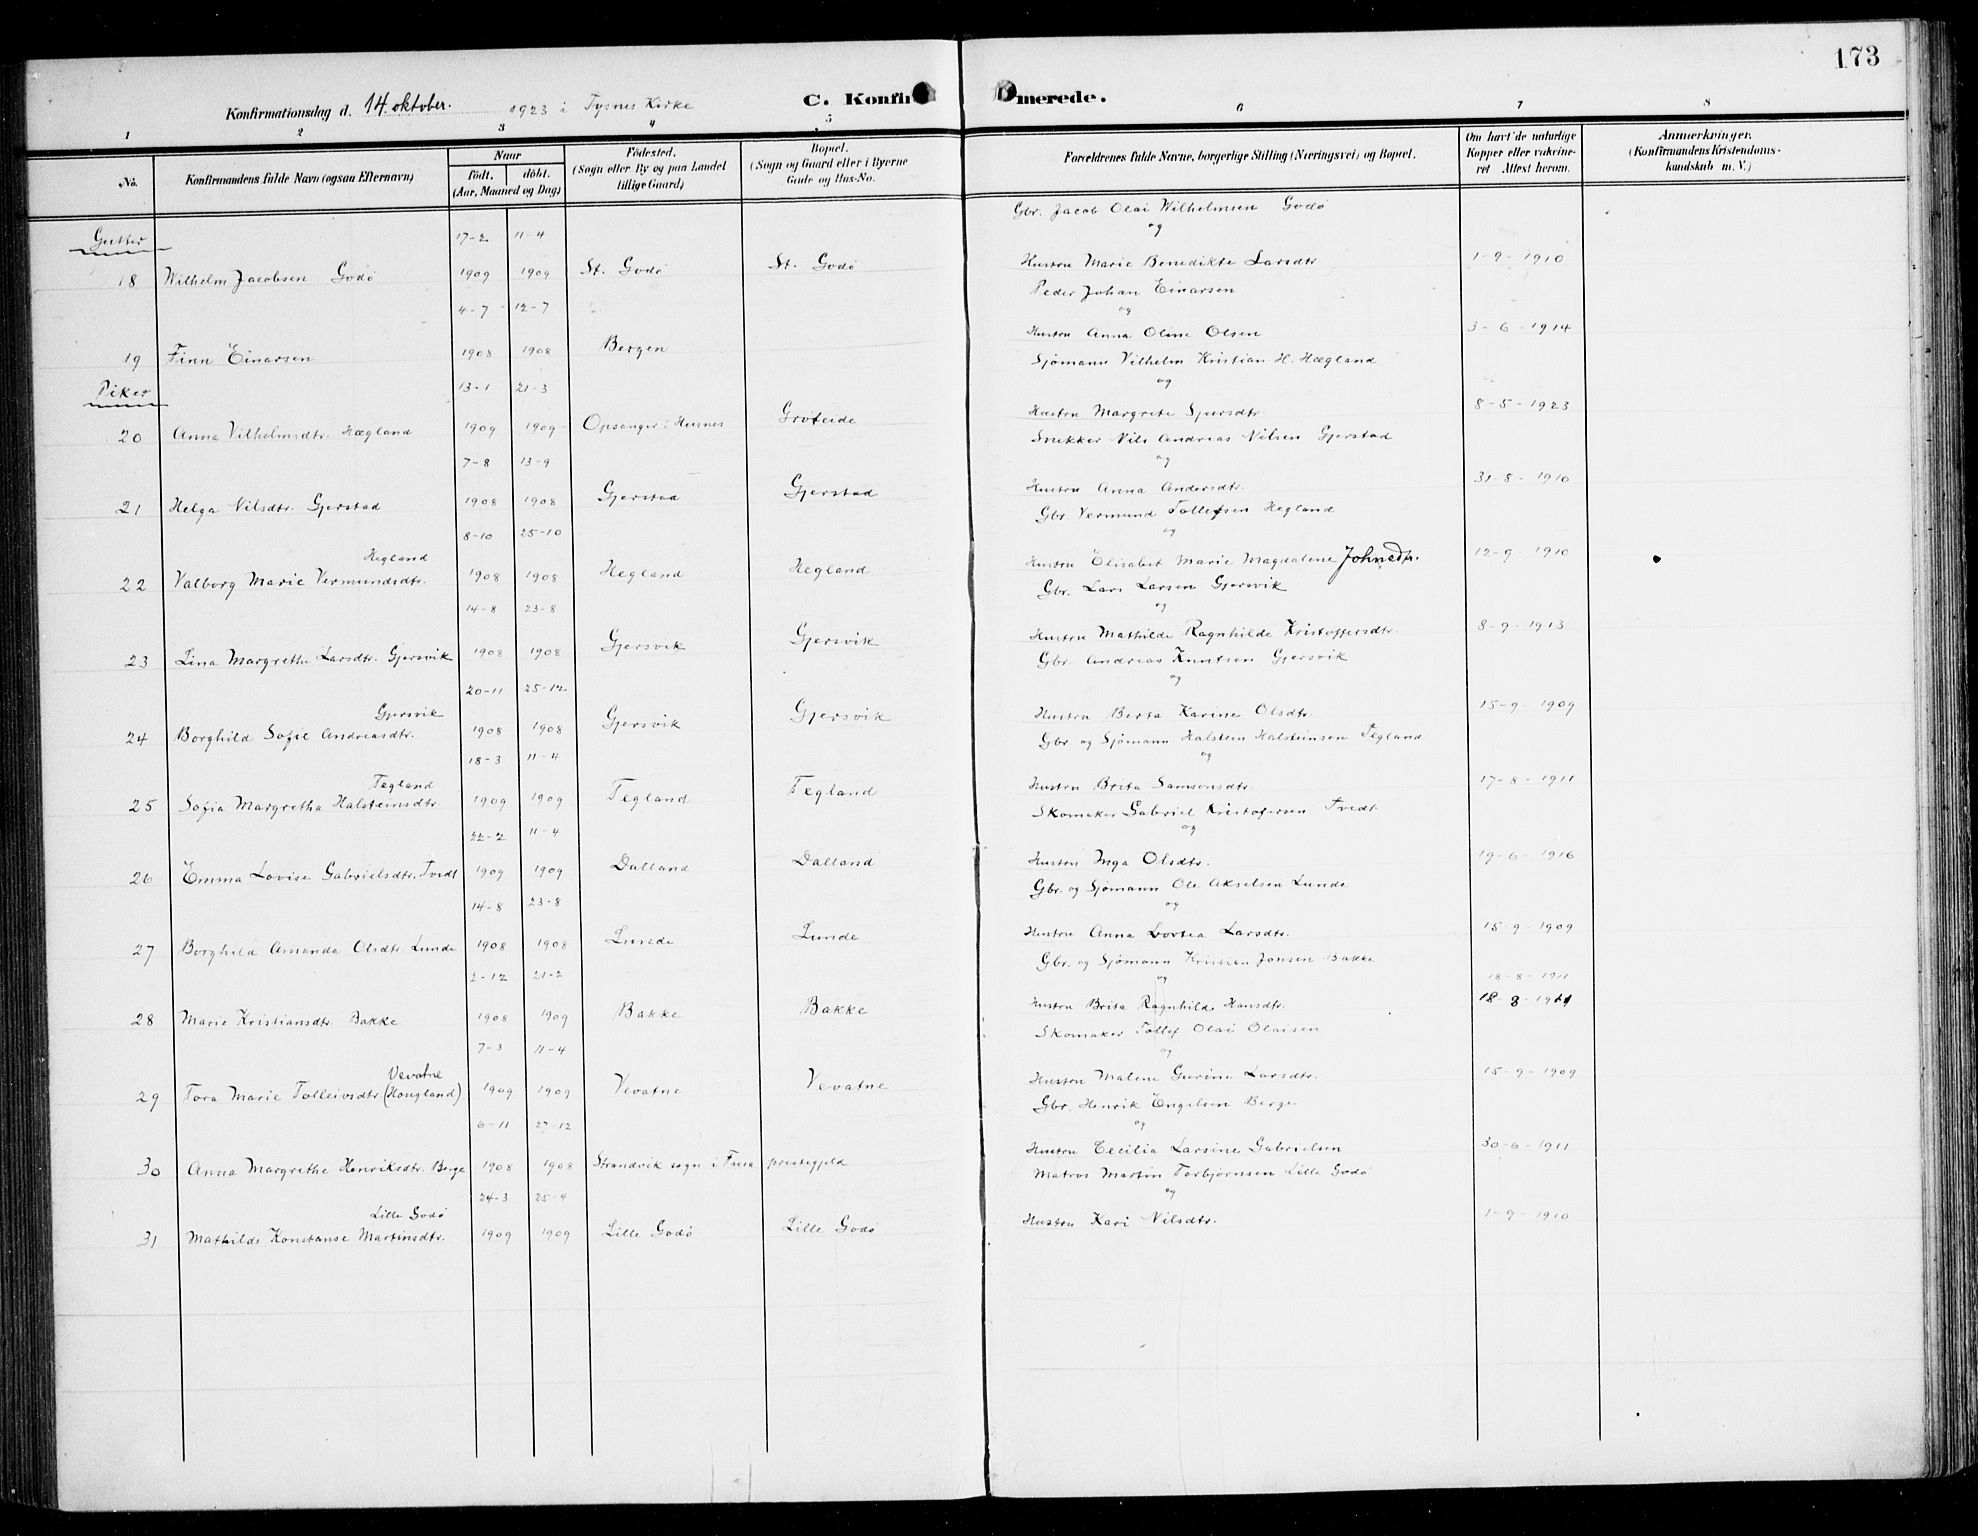 173
Konfirmationsdag d. 14. oktober. 1923 i Tysnes Kirke
C. Konfirmerede.
1 2 3 4 5 6 7 8
No.
Konfirmandens fulde Navn (ogsaa Efternavn)
Naar
födt, döbt.
(Aar, Maaned og Dag)
Födested.
(Sogn eller By og paa Landet
tillige Gaard)
Bopæl.
(Sogn og Gaard eller i Byerne
Gade og Hus-No.
Forældrenes fulde Navne, borgerlige Stilling (Næringsvei) og Bopæl.
Om havt de naturlige
Kopper eller vakcine-
ret Attest herom.
Anmærkninger.
(Konfirmandens Kristendoms-
kundskab m. V.)
Gutter
17-2 11-4 Gbr. Jacob Olai Wilhelmsen Godø
og
18 Wilhelm Jacobsen Godø 1909 1909 St. Godø St. Godø Hustru Marie Benedikte Larsdtr. 1-9-1910
4-7 12-7 Peder Johan Einarsen
og
19 Finn Einarsen 1908 1908 Bergen Hustru Anna Oline Olsen 3-6-1914
Piker
13-1 21-3 Sjømann Vilhelm Kristian H. Hægland
og
20 Anna Vilhelmsdtr. Hægland 1909 1909 Opsanger i Husnes Groteide Hustru Margrete Sjursdtr. 8-5-1923
7-8 13-9 Snekker Nils Andreas Nilsen Gjerstad
og
21 Helga Nilsdtr. Gjerstad 1908 1908 Gjerstad Gjerstad Hustru Anna Andersdtr. 31-8-1910
8-10 25-10 Gbr. Vermund Tollefsen Hegland
og
Hegland
22 Valborg Marie Vermundsdtr. 1908 1908 Hegland Hegland Hustru Elisabet Marie Magdalene Johnsdtr. 12-9-1910
14-8 23-8 Gbr. Lars Larsen Gjersvik
og
23 Lina Margrethe Larsdtr. Gjersvik 1908 1908 Gjersvik Gjersvik Hustru Mathilde Ragnhilde Kristoffersdtr. 8-9-1913
20-11 25-12 Gbr. Andreas Knutsen Gjersvik
og
Gjersvik
24 Borghild Sofie Andreasdtr. 1908 1908 Gjersvik Gjersvik Hustru Berta Karine Olsdtr. 15-9-1909
18-3 11-4 Gbr og Sjømann Halstein Halsteinsen Tegland
og
Tegland
25 Sofia Margretha Halsteinsdtr. 1909 1909 Tegland Tegland Hustru Brita Samsonsdtr. 17-8-1911
22-2 11-4 Skomaker Gabriel Kristofersen Tvedt
og
26 Emma Lovise Gabrielsdtr. Tvedt 1909 1909 Dalland Dalland Hustru Inga Olsdtr. 19-6-1916
14-8 23-8 Gbr. og Sjømann Ole Akselsen Lunde
og
27 Borghild Amanda Olsdtr. Lunde 1908 1908 Lunde Lunde Hustru Anna Larsdtr. 15-9-1909
2-12 21-2 Gbr. og Sjømann Kristian Jonsen Bakke
og 18-8-1911
28 Marie Kristiansdtr. Bakke 1908 1909 Bakke Bakke Hustru Brita Ragnhilde Hansdtr. 18-8-1911
7-3 11-4 Skomaker Tollef Olai Olaisen
og
Vevatne
29 Tora Marie Tolleivsdtr. (Hougland) 1909 1909 Vevatne Vevatne Hustru Malene Gurine Larsdtr. 15-9-1909
6-11 27-12 Gbr. Henrik Engelsen Berge
og
30 Anna Margrethe Henriksdtr. Berge 1908 1908 Strandvik sogn i Fusa prestegjeld Hustru Cecilia Larsine Gabrielsen 30-6-1911
24-3 25-4 Matros Martin Torbjørnsen Lille Godø
og
Lille Godø
31 Mathilde Konstanse Martinsdtr. 1909 1909 Lille Godø Lille Godø Hustru Kari Nilsdtr. 1-9-1910